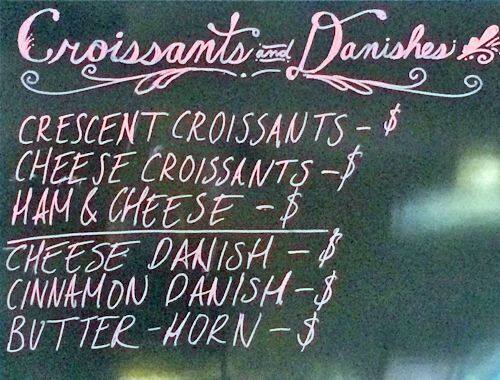 Croissants and Danishes
CRESCENT CROISSANTS - $
CHEESE CROISSANTS - $
HAM & CHEESE - $
CHEESE DANISH - $
CINNAMON DANISH - $
BUTTER-HORN - $